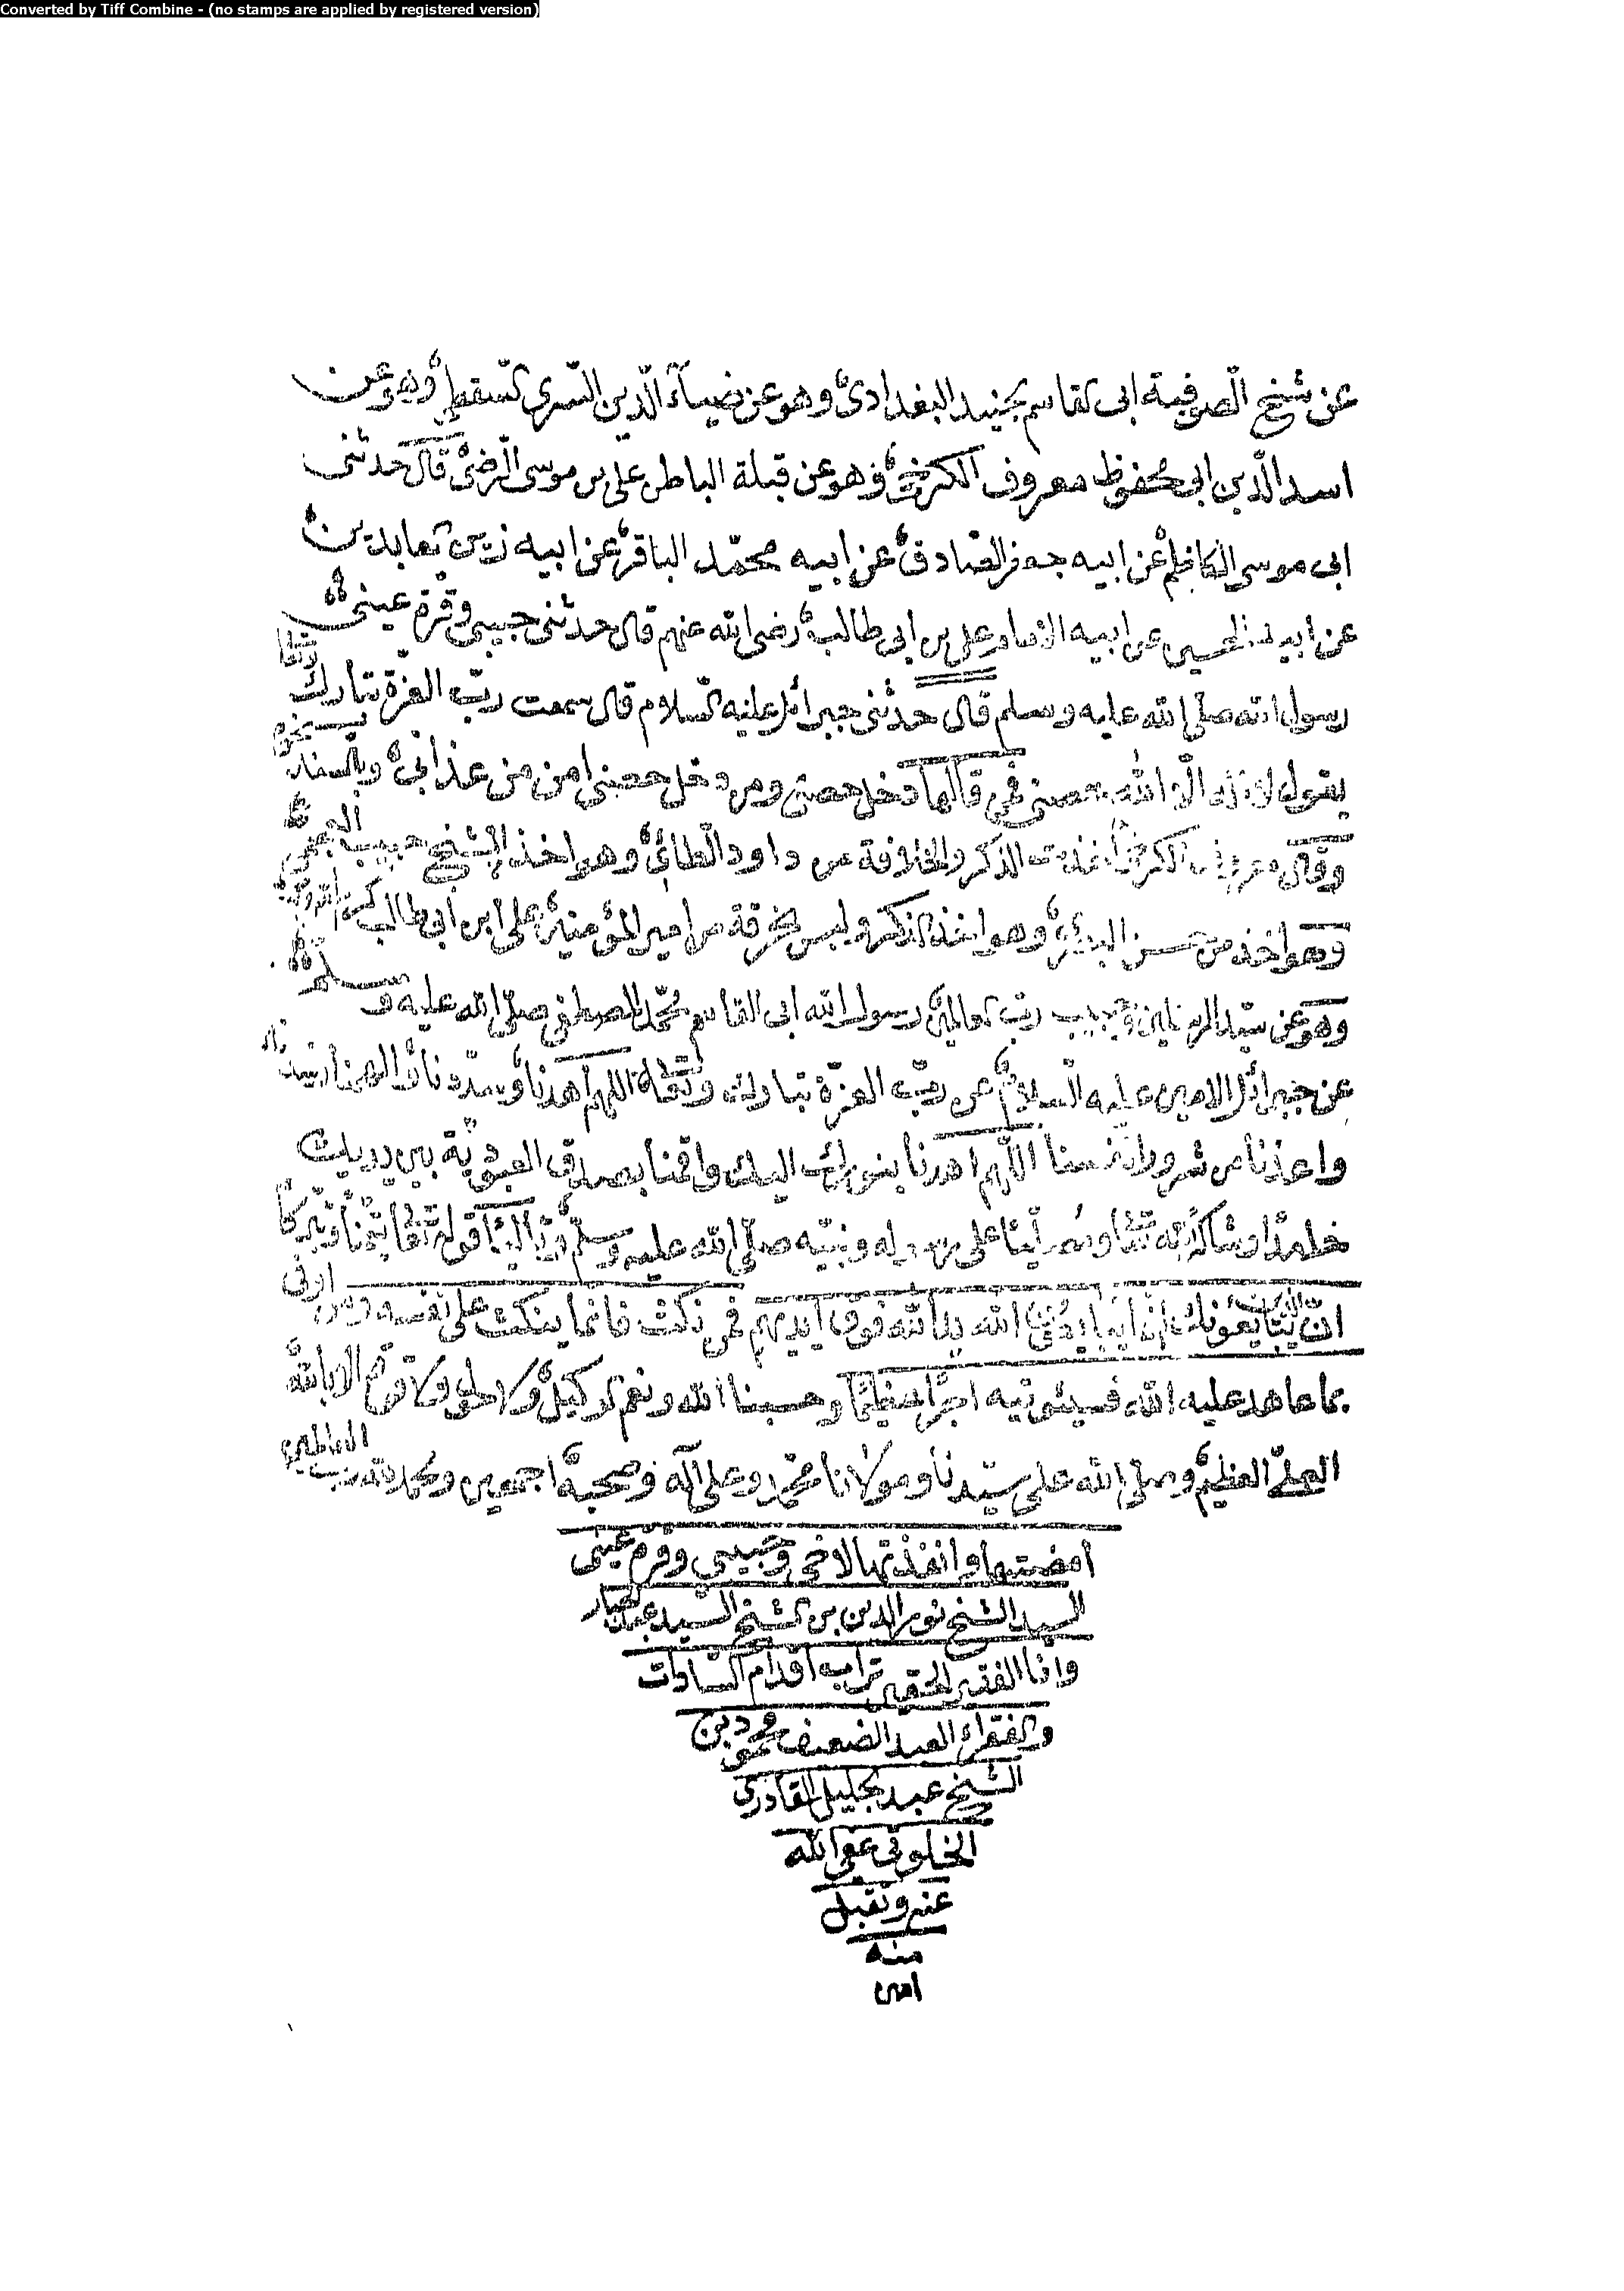 Converted by Tiff Combine - (no stamps are applied by registered version)
عن شيخ الصوفية ابى القاسم الجنيد البغدادى وهو عن ضياء الدين السرى السقطى وهو عن
اسد الدين ابى محفوظ معروف الكرخى وهو عن قبلة الباطن على بن موسى الرضى قال حدثنى
ابى موسى الكاظم عن ابيه جعفر الصادق عن ابيه محمد الباقر عن ابيه زين العابدين
عن ابيه الحسين عن ابيه الامام على بن ابى طالب رضى الله عنهم قال حدثنى حبيبى وقرة عينى
رسول الله صلى الله عليه وسلم قال حدثنى جبرائل عليه السلام قال سمعت رب العزة تبارك وتعالى
يقول لا اله الا الله حصنى فمن قالها دخل حصنى ومن دخل حصنى امن من عذابى
وقال معروف الكرخى اخذت الذكر والخلافة من داود الطائى وهو اخذ الشيخ حبيب العجمى
وهو اخذ من حسن البصرى وهو اخذ الذكر ولبس الخرقة من امير المؤمنين على ابن ابى طالب
وهو عن سيد المرسلين وحبيب رب العالمين رسول الله ابى القاسم محمد المصطفى صلى الله عليه وسلم
عن جبرائل الامين عليه السلام عن رب العزة تبارك وتعالى اللهم اهدنا
واعذنا من شرور انفسنا اللهم اهدنا بنورك اليك واقمنا بصدق العبودية بين يديك
على رسوله ونبيه صلى الله عليه وسلم
ان الذين يبايعونك انما يبايعون الله يد الله فوق ايديهم فمن نكث فانما ينكث على نفسه ومن اوفى
بما عاهد عليه الله فسيؤتيه اجرا عظيما وحسبنا الله ونعم الوكيل ولا حول ولا قوة الا بالله
العلى العظيم وصلى الله على سيدنا ومولانا محمد وعلى آله وصحبه اجمعين والحمد لله رب العالمين
امضيتها وانفذتها لاخى وحبيبى وقرة عينى
السيد الشيخ نور الدين بن الشيخ السيد عبد الجبار
وانا الفقير الحقير تراب اقدام السادات
والفقراء العبد الضعيف محمود بن
الشيخ عبد الجليل القادرى
الخلوتى عفى الله
عنه وتقبل
منه
امين